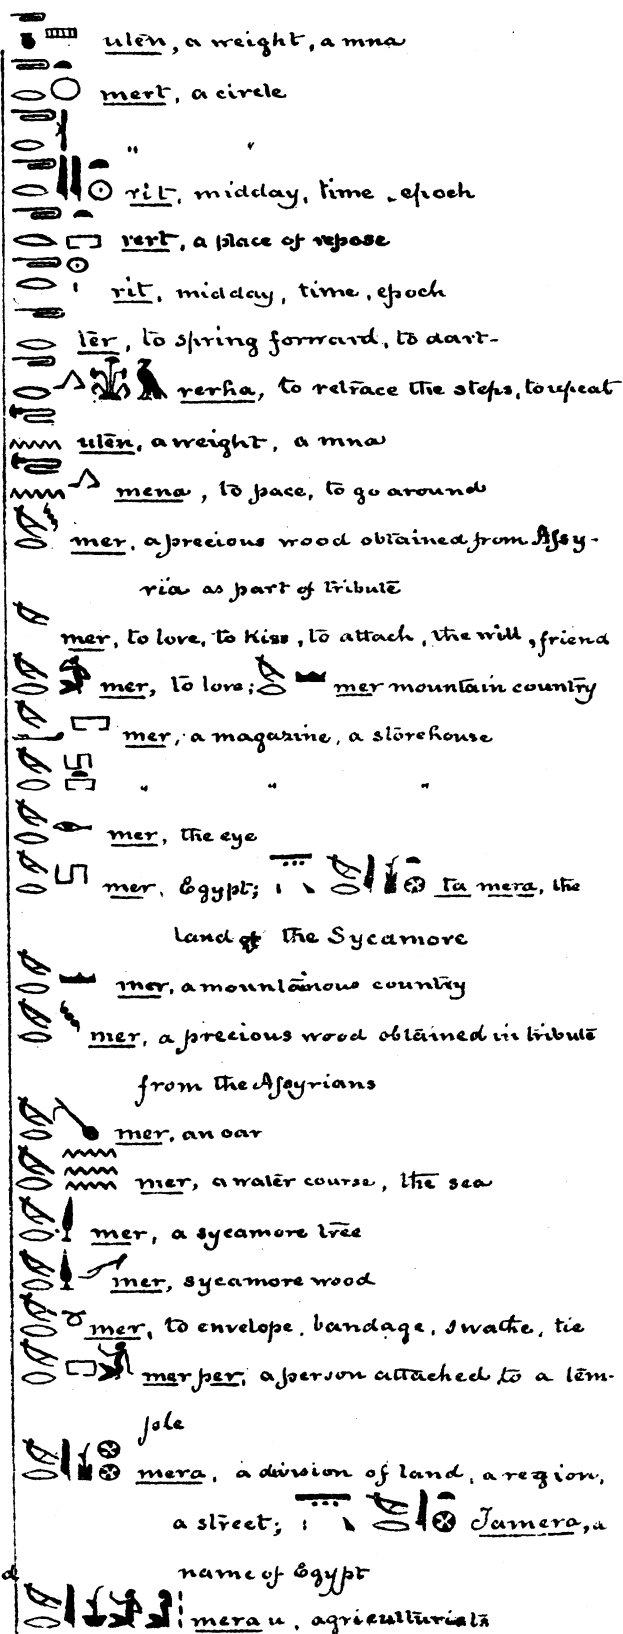 ulen, a weight, a mna
mert, a circle
" "
rit, midday, time, epoch
rert, a place of repose
rit, midday, time, epoch
ler, to spring forward, to dart-
rerha, to retrace the steps, to repeat
ulen, a weight, a mna
mena, to pace, to go around
mer, a precious wood obtained from Assy-
ria as part of tribute
mer, to love, to kiss, to attach, the will, friend
mer, to love; mer mountain country
mer, a magazine, a storehouse
" " "
mer, the eye
mer, Egypt; ta mera, the
land of the Sycamore
mer, a mountainous country
mer, a precious wood obtained in tribute
from the Assyrians
mer, an oar
mer, a water course, the sea
mer, a sycamore tree
mer, sycamore wood
mer, to envelope, bandage, swathe, tie
mer per, a person attached to a tem-
ple
mera, a division of land, a region,
a street; Tamera, a
name of Egypt
mera u, agriculturists